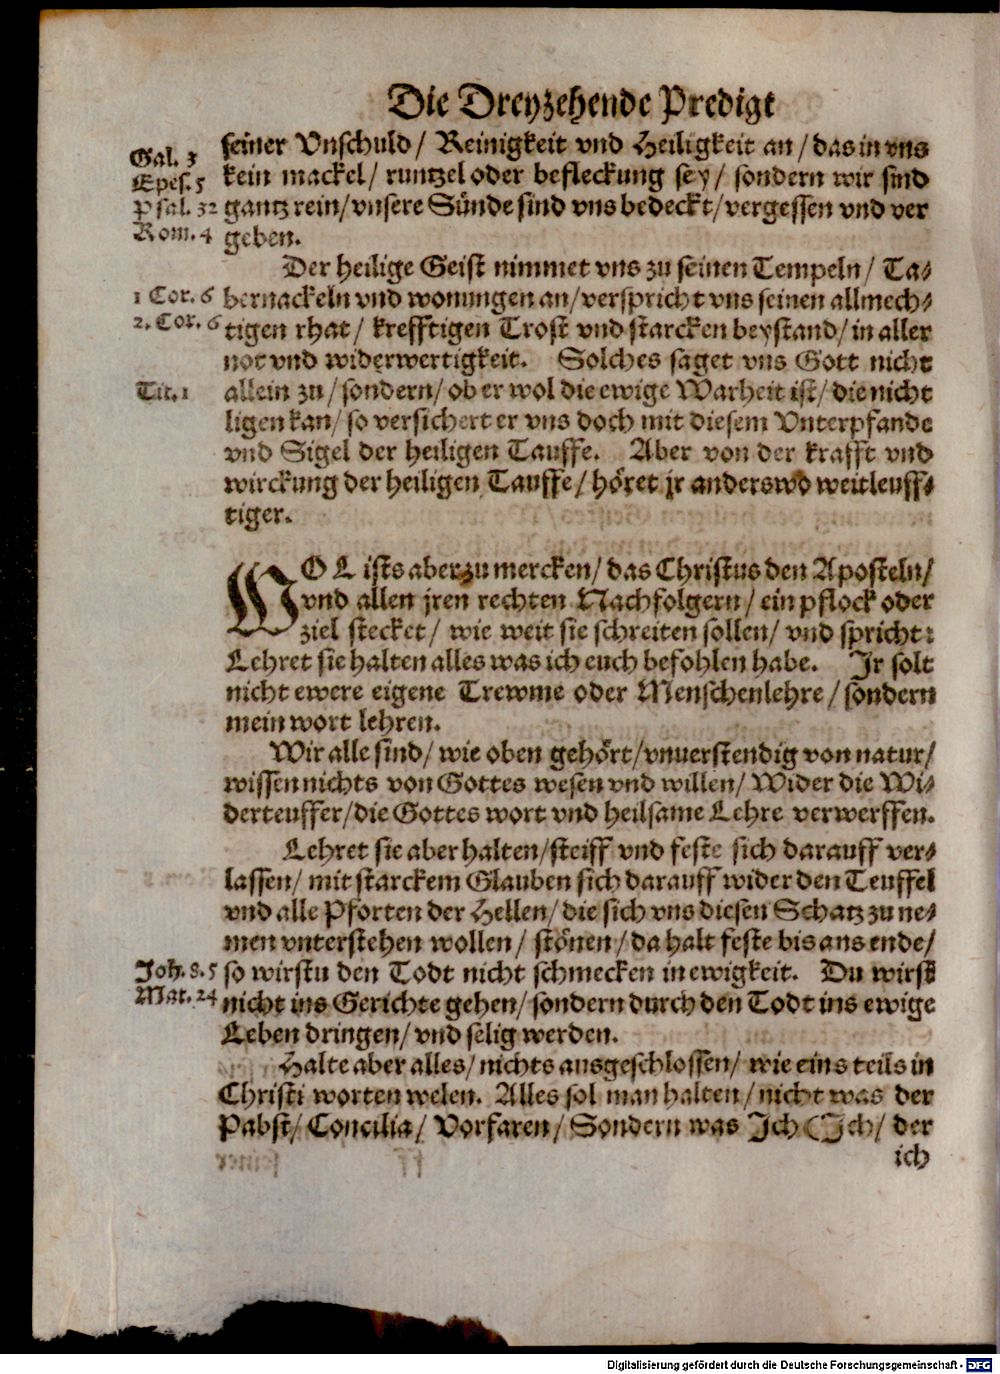 Die Dreyzehende Predigt
seiner Vnschuld/ Reinigkeit vnd Heiligkeit an/ das in vns
Gal. 3
kein mackel/ runtzel oder befleckung sey/ sondern wir sind
Epes. 5
gantz rein/ vnsere Sünde sind vns bedeckt/ vergessen vnd ver
Psal. 32
geben.
Rom. 4
Der heilige Geist nimmet vns zu seinen Tempeln/ Ta-
bernackeln vnd wonungen an/ verspricht vns seinen allmech-
1 Cor. 6
tigen rhat/ krefftigen Trost vnd starcken beystand/ in aller
2. Cor. 6
not vnd widerwertigkeit. Solches saget vns Gott nicht
allein zu/ sondern/ ob er wol die ewige Warheit ist/ die nicht
Tit. 1
ligen kan/ so versichert er vns doch mit diesem Vnterpfande
vnd Sigel der heiligen Tauffe. Aber von der krafft vnd
wirckung der heiligen Tauffe/ höret jr anderswo weitleuff-
tiger.
WOL ists aber zu mercken/ das Christus den Aposteln/
vnd allen jren rechten Nachfolgern/ ein pflock oder
ziel stecket/ wie weit sie schreiten sollen/ vnd spricht:
Lehret sie halten alles was ich euch befohlen habe. Jr solt
nicht ewere eigene Trewme oder Menschenlehre/ sondern
mein wort lehren.
Wir alle sind/ wie oben gehört/ vnuerstendig von natur/
wissen nichts von Gottes wesen vnd willen/ Wider die Wi-
derteuffer/ die Gottes wort vnd heilsame Lehre verwerffen.
Lehret sie aber halten/ steiff vnd feste sich darauff ver-
lassen/ mit starckem Glauben sich darauff wider den Teuffel
vnd alle Pforten der Hellen/ die sich vns diesen Schatz zu ne-
men vnterstehen wollen/ stönen/ da halt feste bis ans ende/
so wirstu den Todt nicht schmecken in ewigkeit. Du wirst
Joh. 8. 5
nicht ins Gerichte gehen/ sondern durch den Todt ins ewige
Mat. 24
Leben dringen/ vnd selig werden.
Halte aber alles/ nichts ausgeschlossen/ wie eins teils in
Christi worten welen. Alles sol man halten/ nicht was der
Pabst/ Concilia/ Vorfaren/ Sondern was Ich (Ich/ der
ich
Digitalisierung gefördert durch die Deutsche Forschungsgemeinschaft - DFG